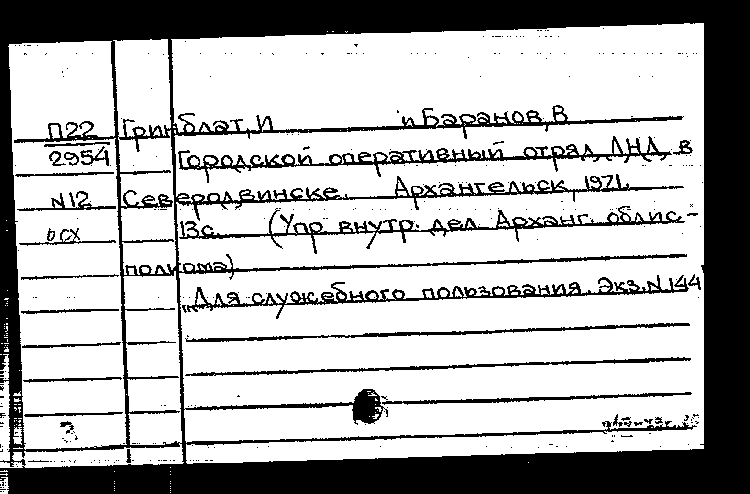 П22 Гринблат, И и Баранов, В
2954 Городской оперативный отряд ДНД в
N12 Северодвинске. Архангельск, 1971.
осх 13с. (Упр. внутр. дел Арханг. облис-
полкома)
"Для служебного пользования. Экз. N 144"
3